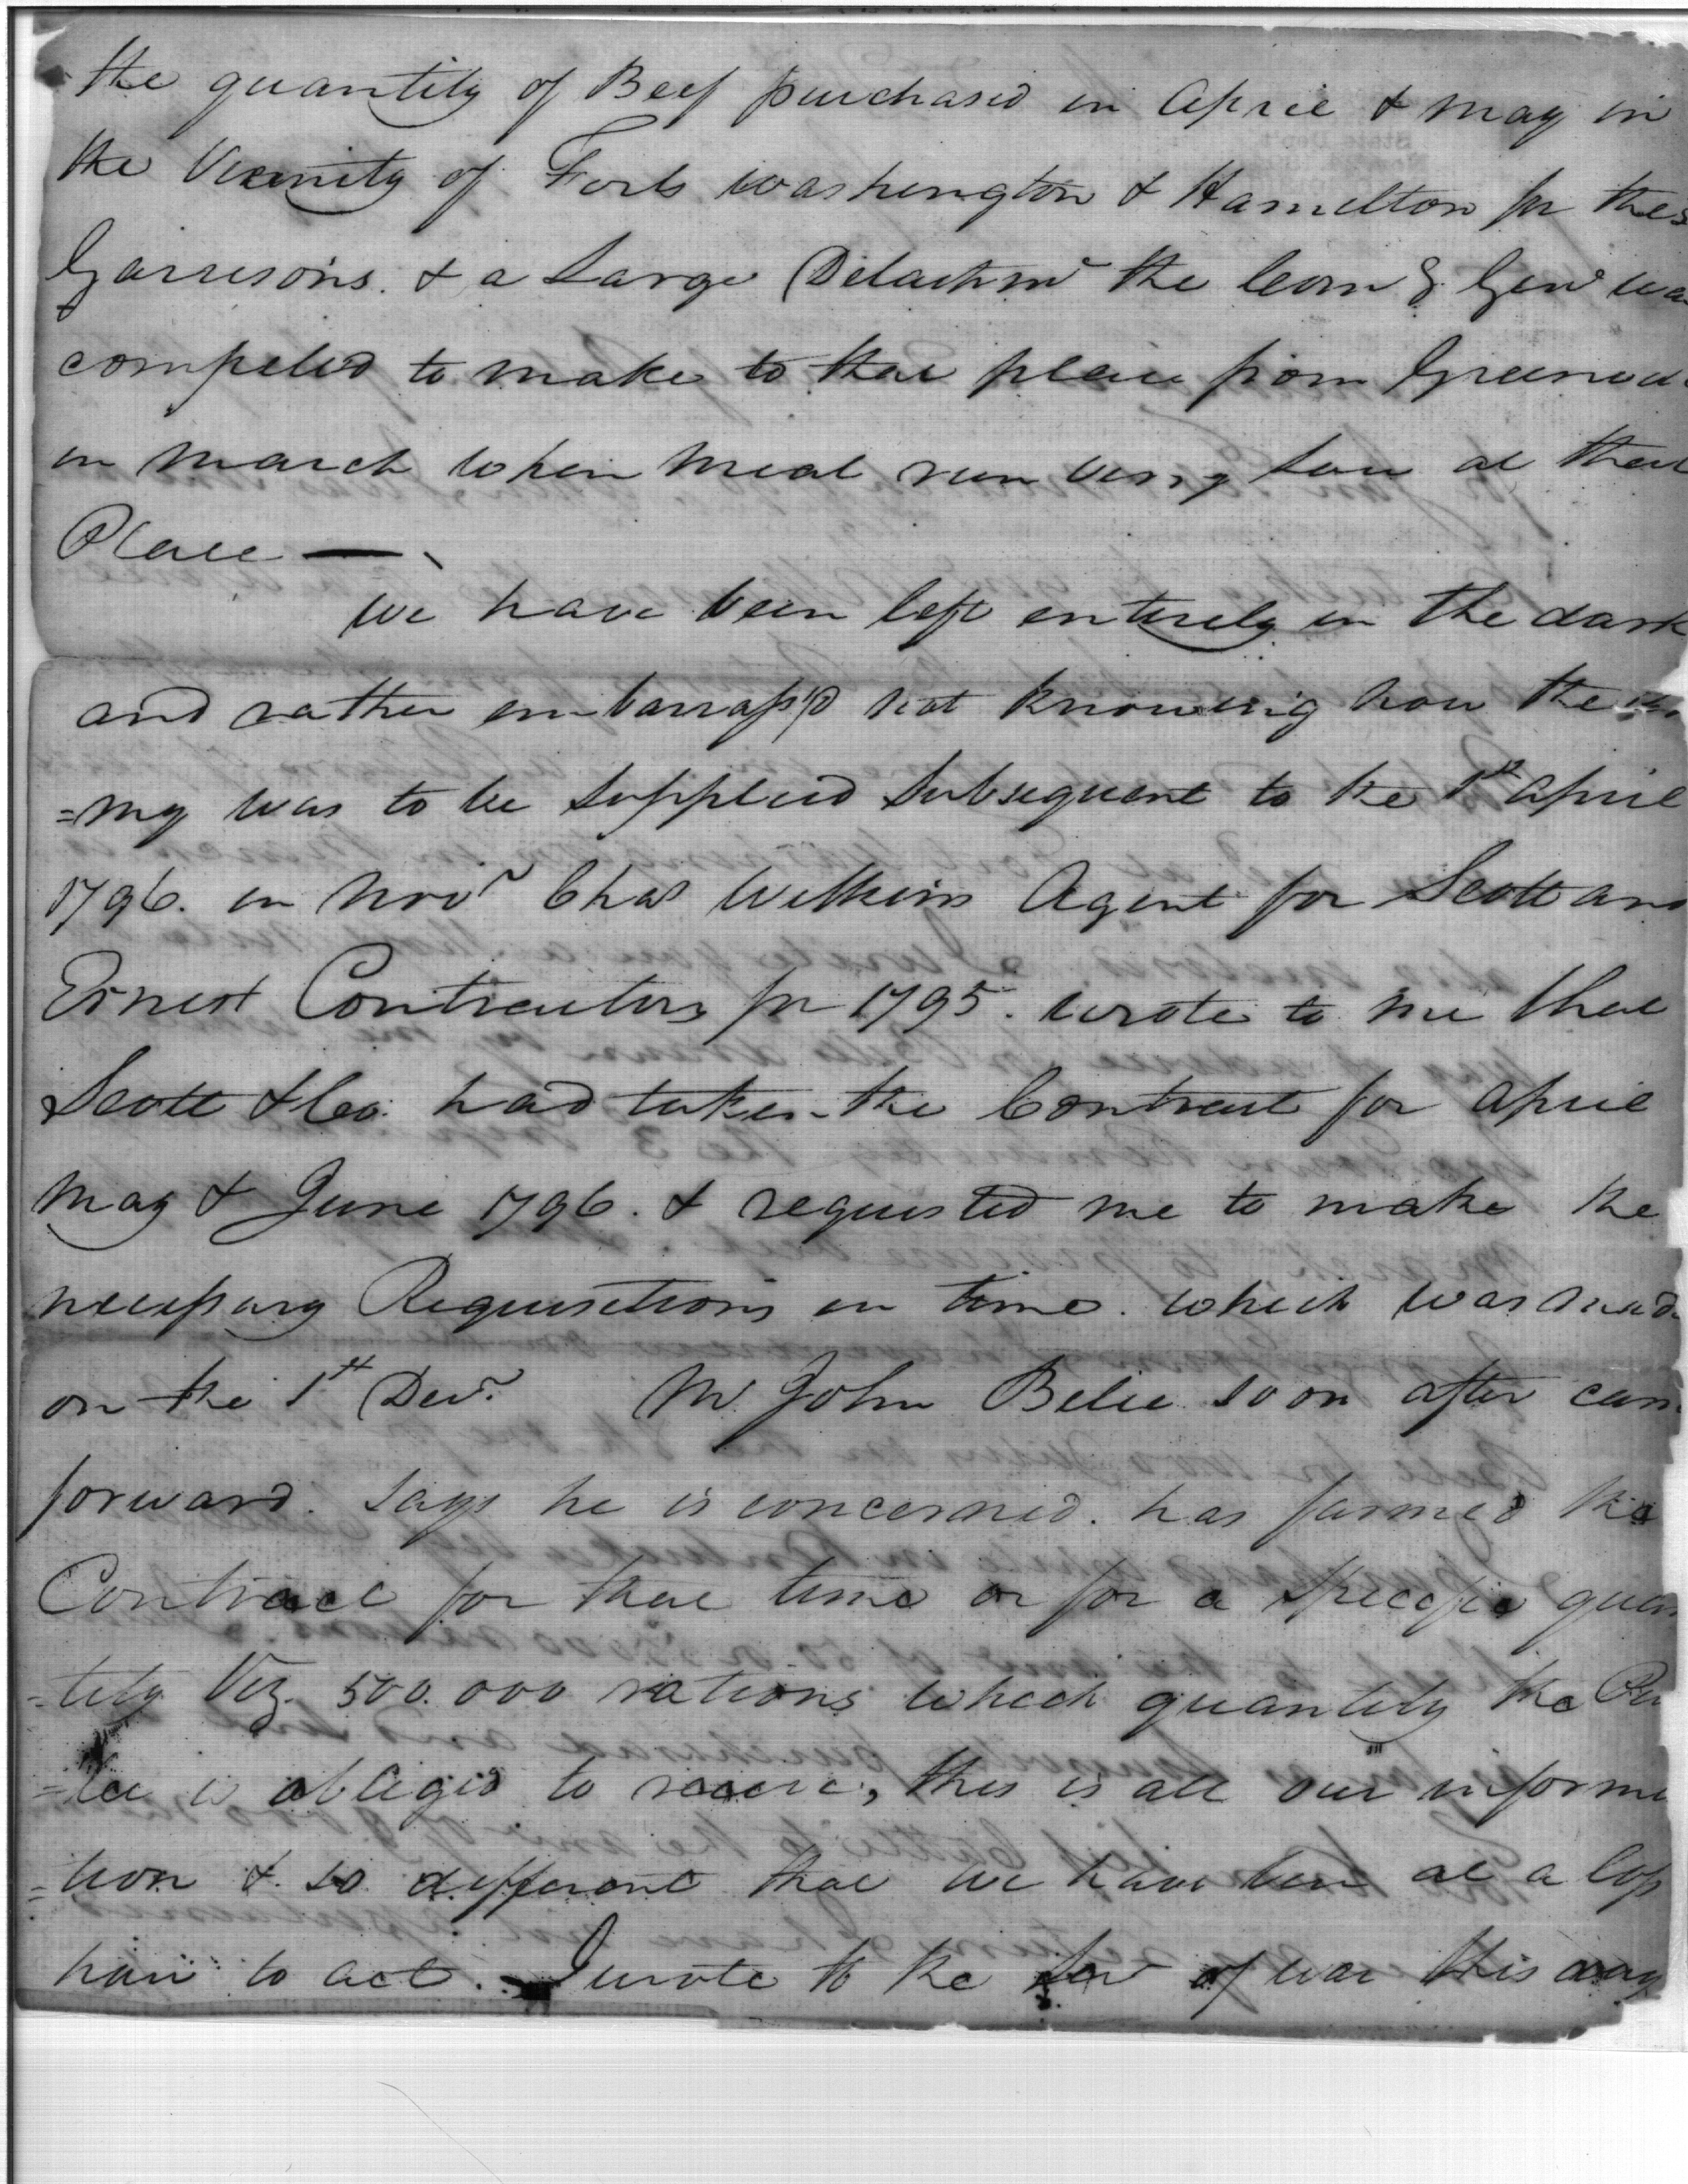 the quantity of Beef purchased in April & may in
the Vicinity of Forts Washington & Hamilton for thes
Garrisons. & a Large Detachmt the Com g Genl wa
compeled to make to that place from Greenv
in March when meat run very low at that
Place —
we have been left entirely in the dark
and rather embarrass'd not knowing how the
=my was to be supplied subsequent to the 1st April
1796. in Novr Chas Wilkins Agent for Scott and
Ernest Contractors for 1795. wrote to me that
Scott & Co. had taken the Contract for April
May & June 1796. & requested me to make the
necessary Requisitions in time. which was mad
on the 1st Decr. Mr John Belie soon after cam
forward. says he is concerned. has farmed the
Contract for that time or for a specific quan
=tity Viz. 500.000 rations which quantity the Pu
is obliged to receive, this is all our informa
=tion & so different that we have been at a loss
how to act. I wrote to the Secr of war this way